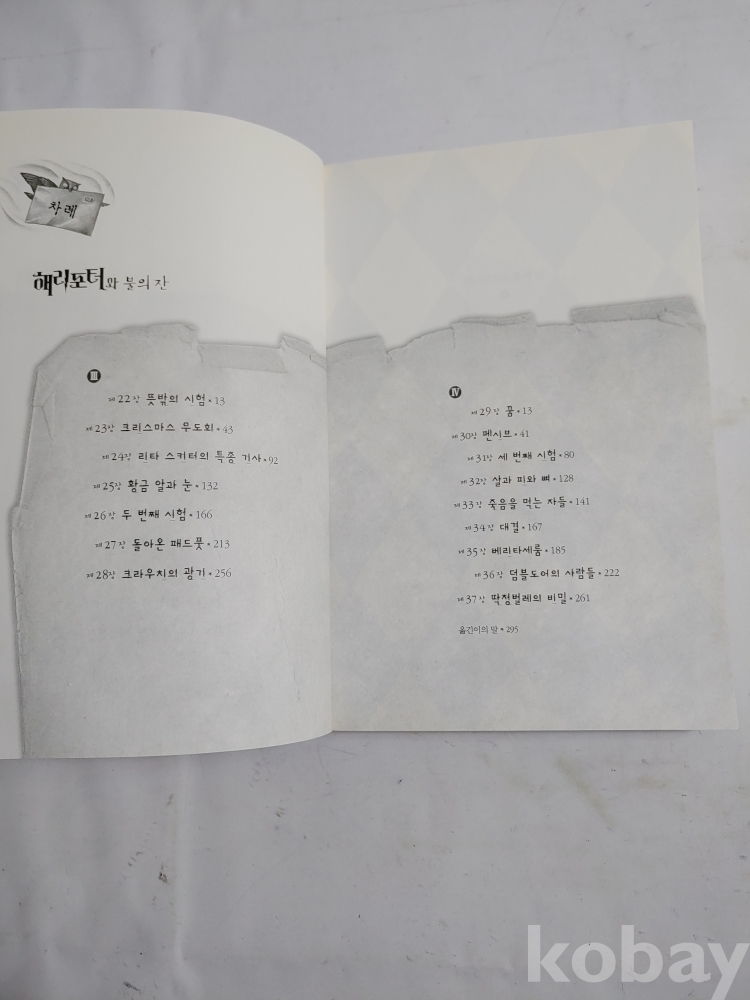 차례
해리포터와 불의 잔
III
제22장 뜻밖의 시험 • 13
제23장 크리스마스 무도회 • 43
제24장 리타 스키터의 특종 기사 • 92
제25장 황금 알과 눈 • 132
제26장 두 번째 시험 • 166
제27장 돌아온 패드풋 • 213
제28장 크라우치의 광기 • 256
IV
제29장 꿈 • 13
제30장 펜시브 • 41
제31장 세 번째 시험 • 80
제32장 살과 피와 뼈 • 128
제33장 죽음을 먹는 자들 • 141
제34장 대결 • 167
제35장 베리타세룸 • 185
제36장 덤블도어의 사람들 • 222
제37장 딱정벌레의 비밀 • 261
옮긴이의 말 • 295
kobay